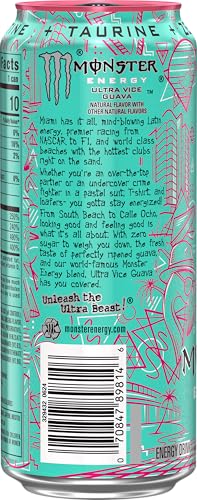 + TAURINE +
MONSTER
ENERGY
ULTRA VICE
GUAVA ™
NATURAL FLAVOR WITH
OTHER NATURAL FLAVORS
Facts
1 can
10
Miami has it all, mind-blowing Latin
energy, premier racing from
NASCAR, to F1, and world class
beaches with the hottest clubs
right on the sand.
Whether you're an over-the-top
partier or an undercover crime
fighter in a pastel suit, T-shirt, and
loafers- you gotta stay energized!
From South Beach to Calle Ocho,
looking good and feeling good is
what it's all about. With zero
sugar to weigh you down, the fresh
taste of perfectly ripened guava,
and our world-famous Monster
Energy blend, Ultra Vice Guava
has you covered.
Unleash the
Ultra Beast!®
monsterenergy.com®
0 70847 89814 6
ENERGY